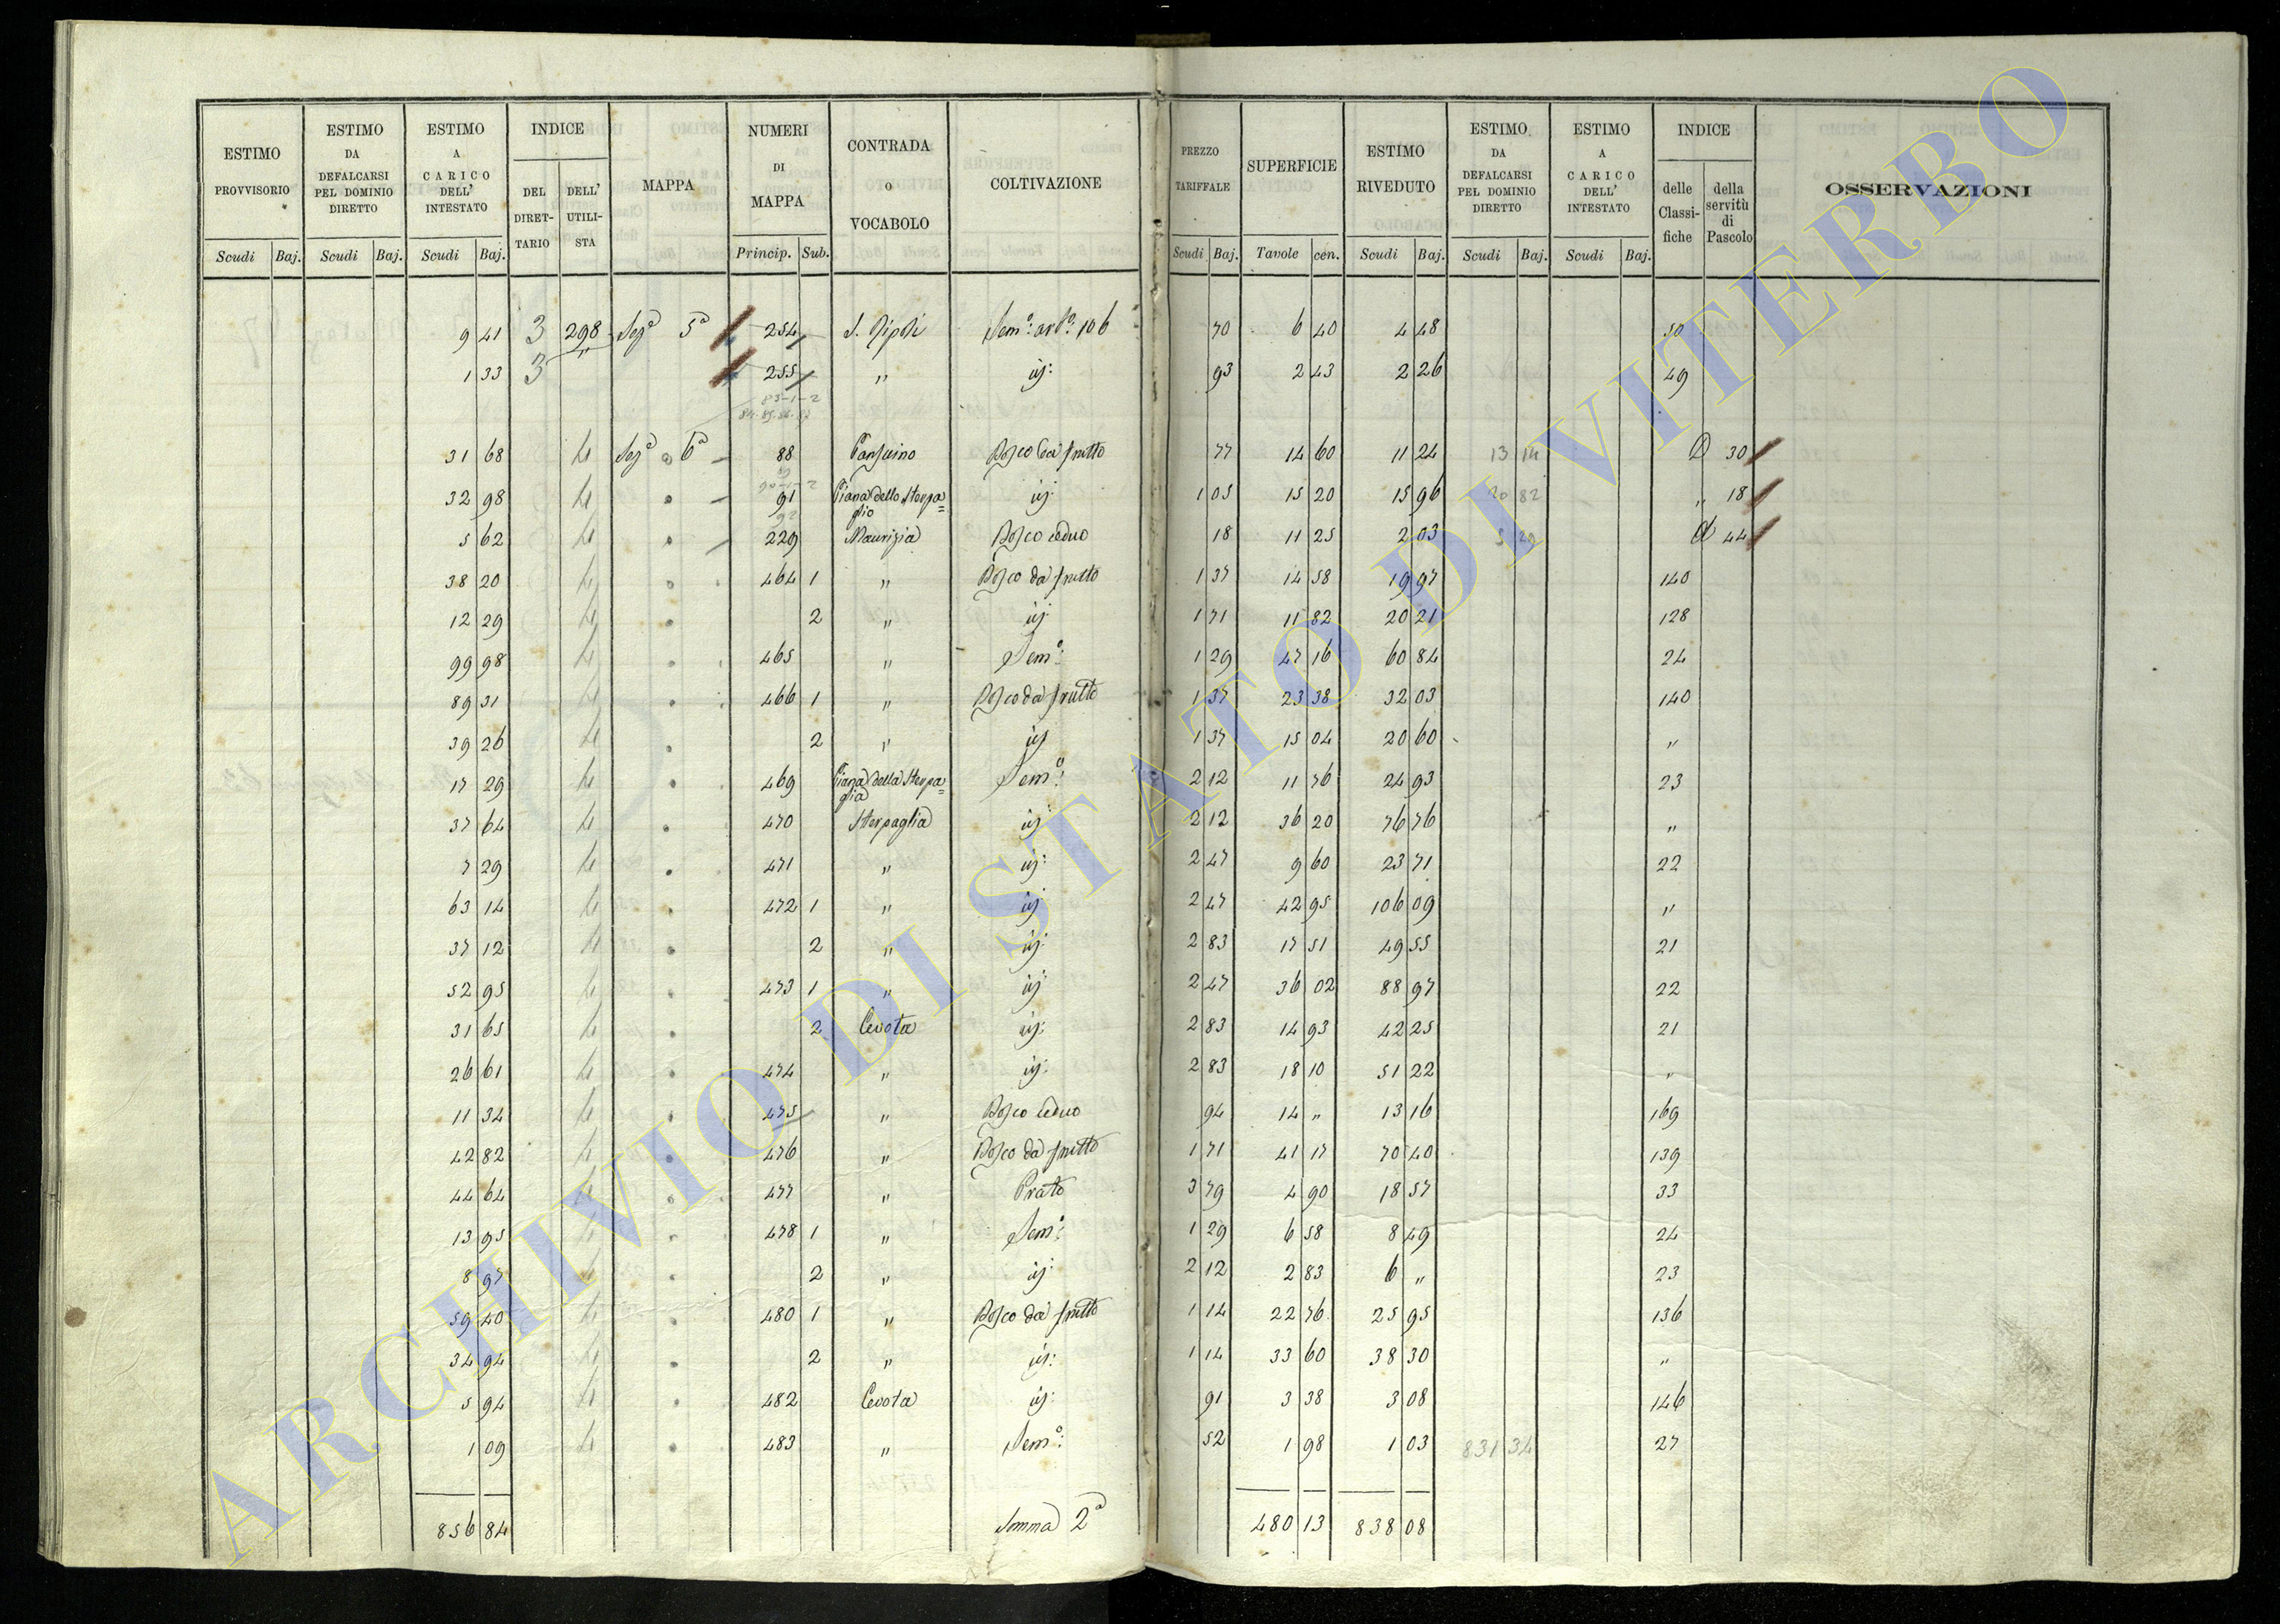 ESTIMO PROVVISORIO
ESTIMO DA DEFALCARSI PEL DOMINIO DIRETTO
ESTIMO A CARICO DELL' INTESTATO
INDICE
DEL DIRETTARIO
DELL' UTILISTA
MAPPA
NUMERI DI MAPPA
CONTRADA o VOCABOLO
COLTIVAZIONE
PREZZO TARIFFALE
SUPERFICIE
ESTIMO RIVEDUTO
ESTIMO DA DEFALCARSI PEL DOMINIO DIRETTO
ESTIMO A CARICO DELL' INTESTATO
INDICE
delle Classifiche
della servitù di Pascolo
OSSERVAZIONI
Scudi Baj. Scudi Baj. Scudi Baj. Princip. Sub. Scudi Baj. Tavole cen. Scudi Baj. Scudi Baj. Scudi Baj.
9 41 3 298 Sezª 5ª 254 Semº: arbº: 106 70 6 40 4 48 50
1 33 3 " 255 " id: 93 2 43 2 26 49
83-1-2
84.85.86.87
31 68 4 Sezª 6ª 88 Bosco da frutto 77 14 60 11 24 13 14 30
90-1-2
32 98 4 91 Piana dello Sterpa=
glio id: 1 05 15 20 15 96 20 82 " 18
92
5 62 4 229 Maurizia Bosco ceduo 18 11 25 2 03 5 29 44
38 20 4 464 1 " Bosco da frutto 1 37 14 58 19 97 140
12 29 4 2 " id: 1 71 11 82 20 21 128
99 98 4 465 " Semº: 1 29 47 16 60 84 24
89 31 4 466 1 " Bosco da frutto 1 37 23 38 32 03 140
39 26 4 2 " id: 1 37 15 04 20 60 "
17 29 4 469 Piana della Sterpa=
glia Semº: 2 12 11 76 24 93 23
37 64 4 470 Sterpaglia id: 2 12 36 20 76 76 "
7 29 4 471 " id: 2 47 9 60 23 71 22
63 14 4 472 1 " id: 2 47 42 95 106 09 "
37 12 4 2 " id: 2 83 17 51 49 55 21
52 95 4 473 1 " id: 2 47 36 02 88 97 22
31 65 4 2 Cevota id: 2 83 14 93 42 25 21
26 61 4 474 " id: 2 83 18 10 51 22 "
11 34 4 475 " Bosco ceduo 94 14 " 13 16 169
42 82 4 476 " Bosco da frutto 1 71 41 17 70 40 139
44 64 4 477 " Prato 3 79 4 90 18 57 33
13 95 4 478 1 " Semº: 1 29 6 58 8 49 24
8 97 4 2 " id: 2 12 2 83 6 " 23
59 40 4 480 1 " Bosco da frutto 1 14 22 76 25 95 136
34 94 4 2 " id: 1 14 33 60 38 30 "
5 94 4 482 Cevota id: 91 3 38 3 08 146
1 09 4 483 " Semº: 52 1 98 1 03 831 34 27
856 84 Somma 2ª 480 13 838 08
ARCHIVIO DI STATO DI VITERBO